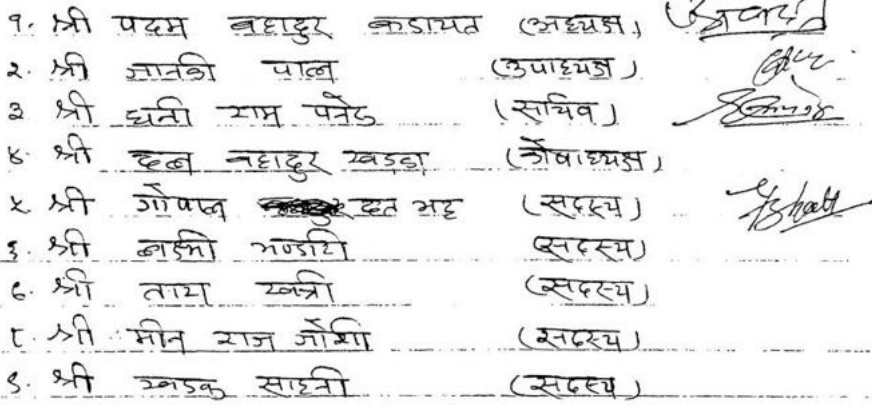 १. श्री पदम बहादुर कडायत (अध्यक्ष)
२. श्री जानकी पाल (उपाध्यक्ष)
३ श्री धनी राम पनेरु (सचिव)
४. श्री दल बहादुर खडका (कोषाध्यक्ष)
५ श्री गोपाल दत भट्ट (सदस्य) Bhatt
६. श्री लक्ष्मी भण्डारी (सदस्य)
७. श्री तारा खत्री (सदस्य)
८. श्री मीन राज जोशी (सदस्य)
९. श्री खडक साहनी (सदस्य)